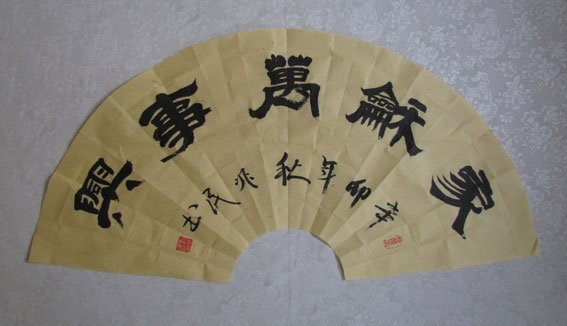 家龢萬事興
辛卯年秋兆民书